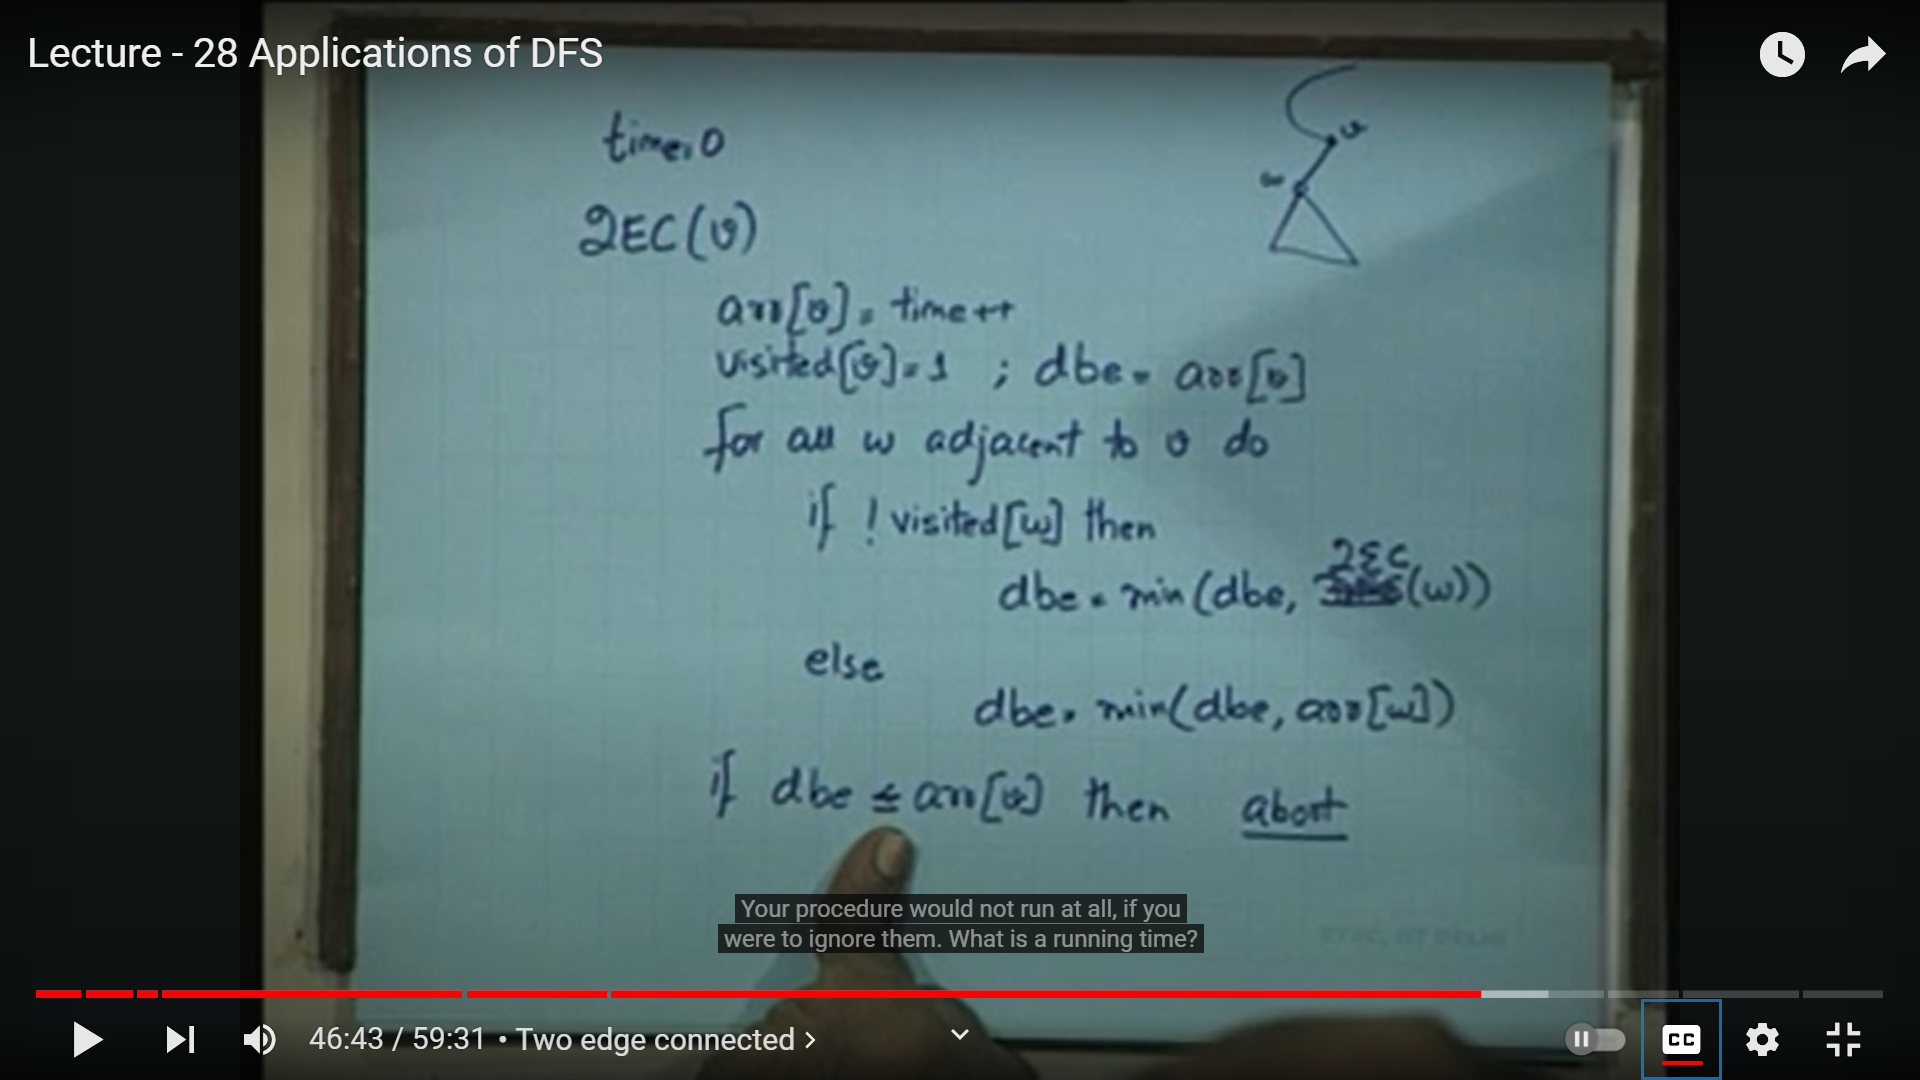 Lecture - 28 Applications of DFS
time=0
v
w
2EC(v)
arr[v] = time++
visited[v]=1 ; dbe = arr[v]
for all w adjacent to v do
if ! visited[w] then
dbe = min(dbe, 2EC(w))
else
dbe = min(dbe, arr[w])
if dbe ≤ arr[v] then abort
Your procedure would not run at all, if you
were to ignore them. What is a running time?
ETSC, IIT DELHI
46:43 / 59:31 • Two edge connected >
CC